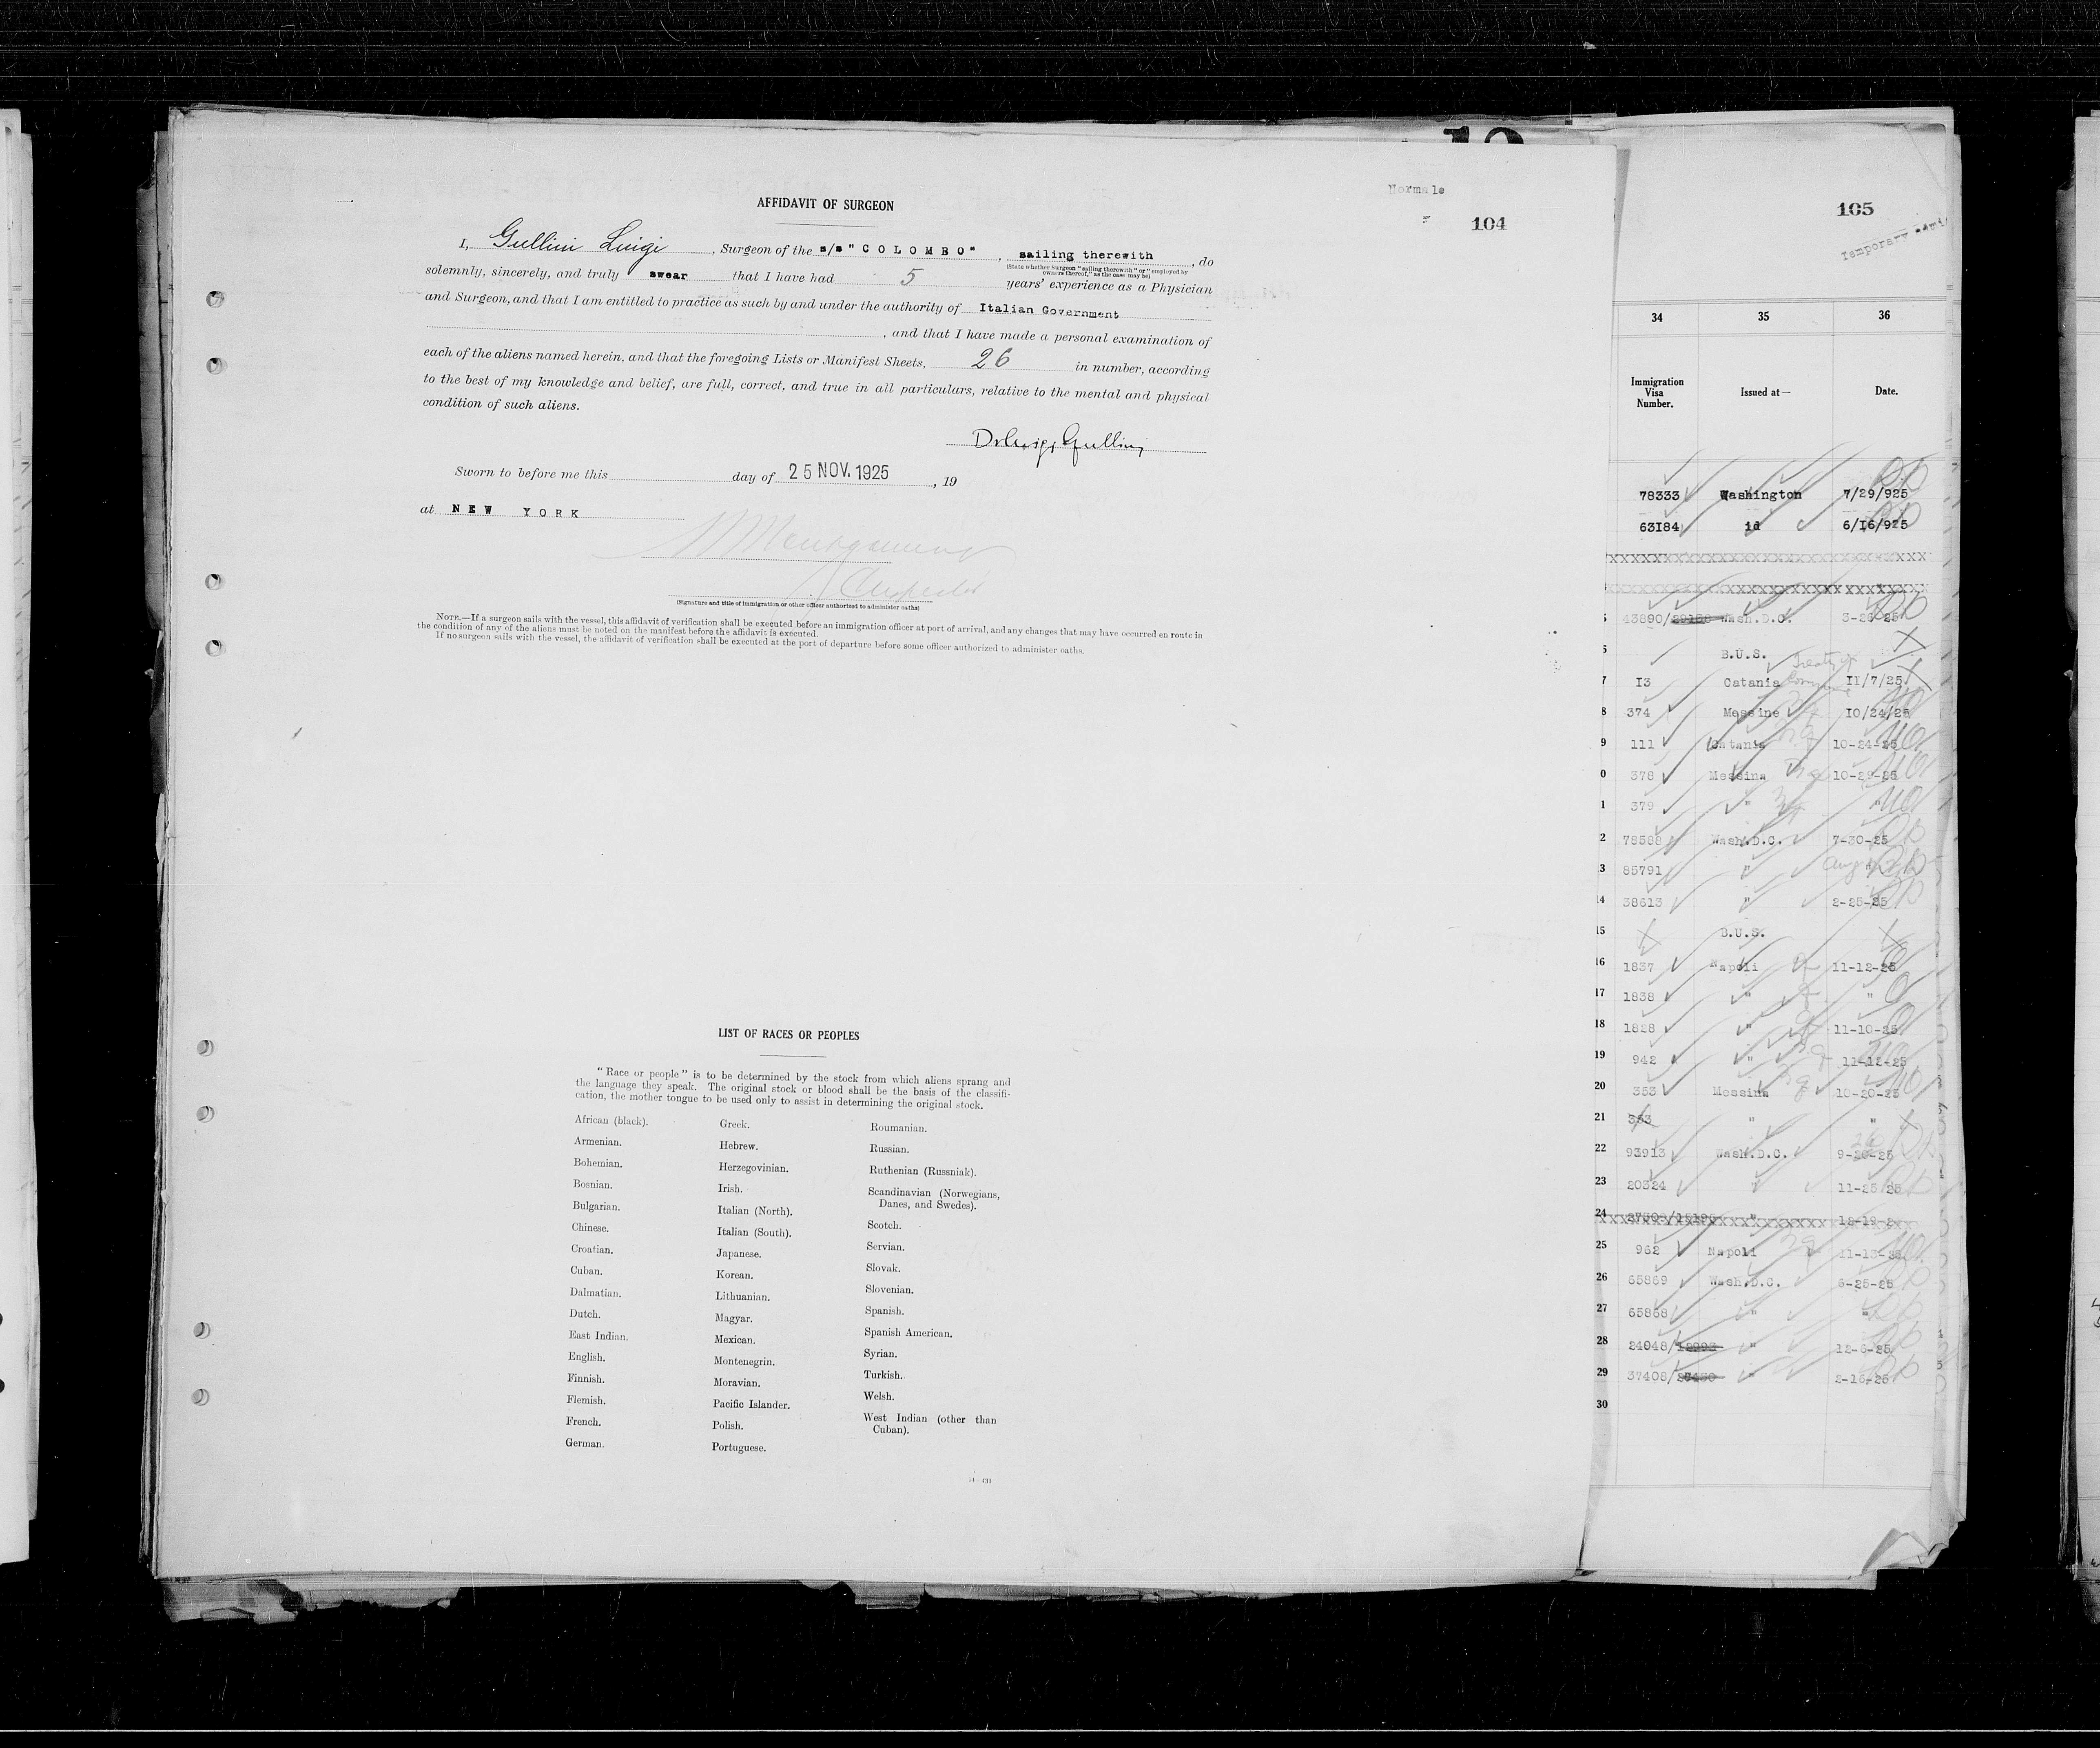 Normale
104
AFFIDAVIT OF SURGEON
I, Gullini Luigi, Surgeon of the s/s "COLOMBO", sailing therewith, do
(State whether Surgeon "sailing therewith" or "employed by
owners thereof," as the case may be)
solemnly, sincerely, and truly swear that I have had 5 years' experience as a Physician
and Surgeon, and that I am entitled to practice as such by and under the authority of Italian Government
, and that I have made a personal examination of
each of the aliens named herein, and that the foregoing Lists or Manifest Sheets, 26 in number, according
to the best of my knowledge and belief, are full, correct, and true in all particulars, relative to the mental and physical
condition of such aliens.
Dr Luigi Gullini
Sworn to before me this day of 25 NOV. 1925, 19
at NEW YORK
(Signature and title of immigration or other officer authorized to administer oaths)
NOTE.—If a surgeon sails with the vessel, this affidavit of verification shall be executed before an immigration officer at port of arrival, and any changes that may have occurred en route in
the condition of any of the aliens must be noted on the manifest before the affidavit is executed.
If no surgeon sails with the vessel, the affidavit of verification shall be executed at the port of departure before some officer authorized to administer oaths.
LIST OF RACES OR PEOPLES
"Race or people" is to be determined by the stock from which aliens sprang and
the language they speak. The original stock or blood shall be the basis of the classifi-
cation, the mother tongue to be used only to assist in determining the original stock.
African (black).
Armenian.
Bohemian.
Bosnian.
Bulgarian.
Chinese.
Croatian.
Cuban.
Dalmatian.
Dutch.
East Indian.
English.
Finnish.
Flemish.
French.
German.
Greek.
Hebrew.
Herzegovinian.
Irish.
Italian (North).
Italian (South).
Japanese.
Korean.
Lithuanian.
Magyar.
Mexican.
Montenegrin.
Moravian.
Pacific Islander.
Polish.
Portuguese.
Roumanian.
Russian.
Ruthenian (Russniak).
Scandinavian (Norwegians,
Danes, and Swedes).
Scotch.
Servian.
Slovak.
Slovenian.
Spanish.
Spanish American.
Syrian.
Turkish.
Welsh.
West Indian (other than
Cuban).
105
Temporary
34 35 36
Immigration
Visa
Number.
Issued at—
Date.
78333 Washington 7/29/925
63184 id 6/16/925
43890/ Wash.D.C.
B.U.S.
7 13 Catania 11/7/25
8 374 Messina 10/24/25
9 111 Catania 10-24-25
0 378 Messina 10-29-25
1 379 "
2 78588 Wash.D.C. 7-30-25
3 85791 " Aug
14 38613 " 2-25-25
15 B.U.S.
16 1837 Napoli 11-12-25
17 1838 " "
18 1828 " 11-10-25
19 942 " 11-12-25
20 353 Messina 10-20-25
21 353 " "
22 93913 Wash.D.C. 9-26-25
23 20324 " 11-25-25
24
25 962 Napoli 11-13-25
26 65869 Wash.D.C. 6-25-25
27 65868 " "
28 24048/ " 12-6-25
29 37408/ " 2-16-25
30